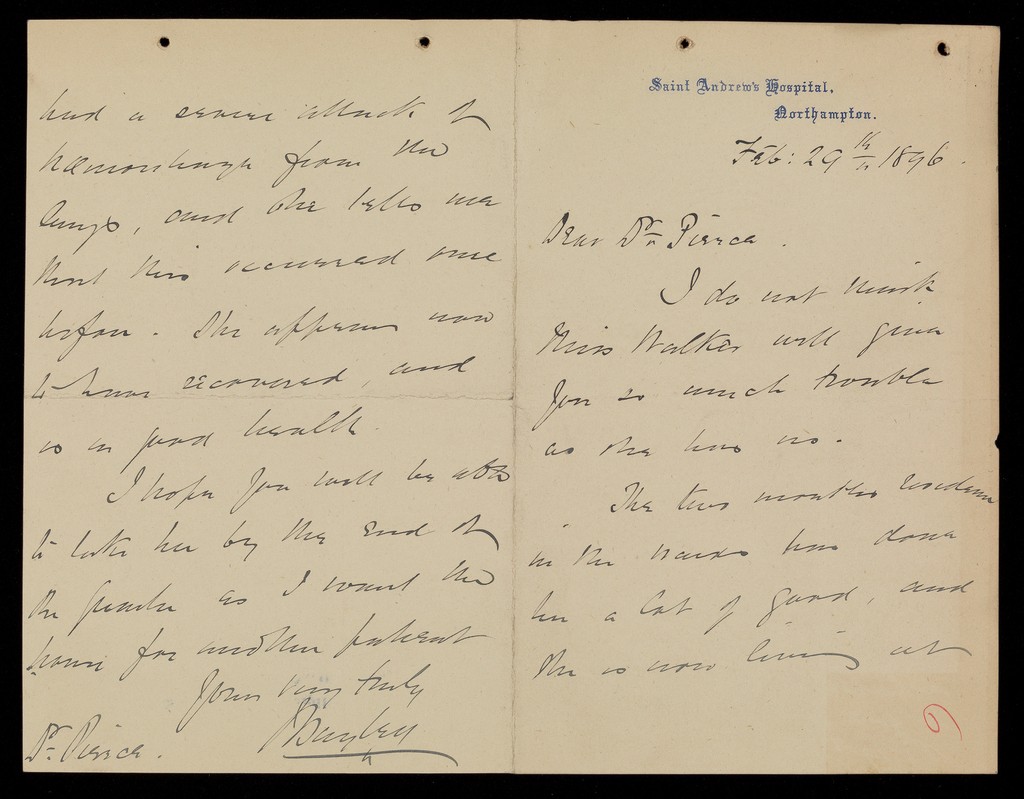 Saint Andrew's Hospital,
Northampton.
Feb: 29th 1896.
Dear Dr Pierce.
I do not think
Miss Walker will give
you so much trouble
as she has us.
The two months residence
in the has done
her a lot of good, and
she is now living at
had a severe attack of
hæmorrhage from the
lungs, and she tells me
that this occurred once
before. She appears now
to have recovered, and
is in good health.
I hope you will be able
to take her by the end of
the quarter as I want the
house for another patient
Yours very truly
J Bayley
Dr Pierce.
9